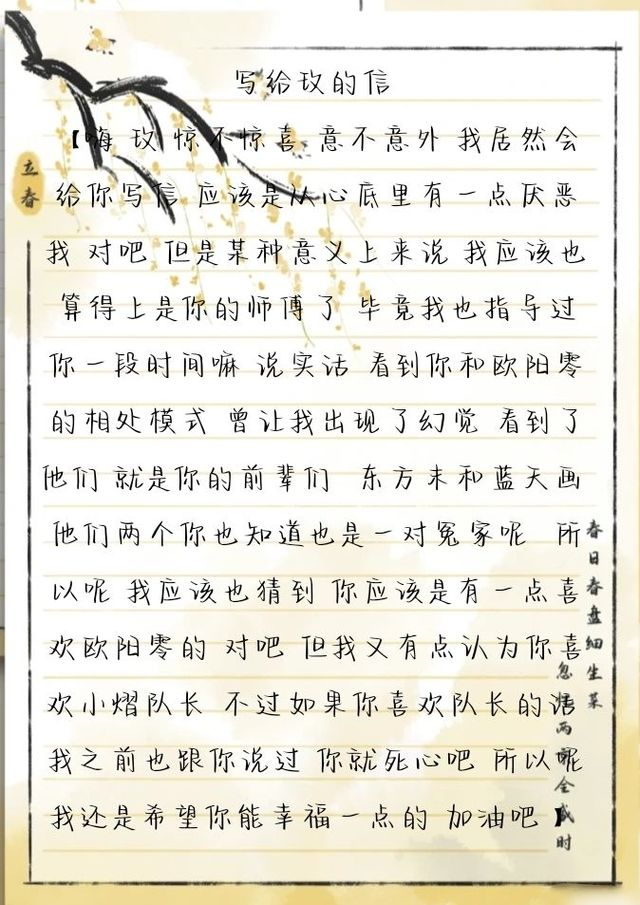 写给玫的信
【嗨 玫 惊不惊喜 意不意外 我居然会
给你写信 应该是从心底里有一点厌恶
我 对吧 但是某种意义上来说 我应该也
算得上是你的师傅了 毕竟我也指导过
你一段时间嘛 说实话 看到你和欧阳零
的相处模式 曾让我出现了幻觉 看到了
他们 就是你的前辈们 东方末和蓝天画
他们两个你也知道也是一对冤家呢 所
以呢 我应该也猜到 你应该是有一点喜
欢欧阳零的 对吧 但我又有点认为你喜
欢小熠队长 不过如果你喜欢队长的话
我之前也跟你说过 你就死心吧 所以呢
我还是希望你能幸福一点的 加油吧】
立春
春日春盘细生菜
忽忆两京全盛时